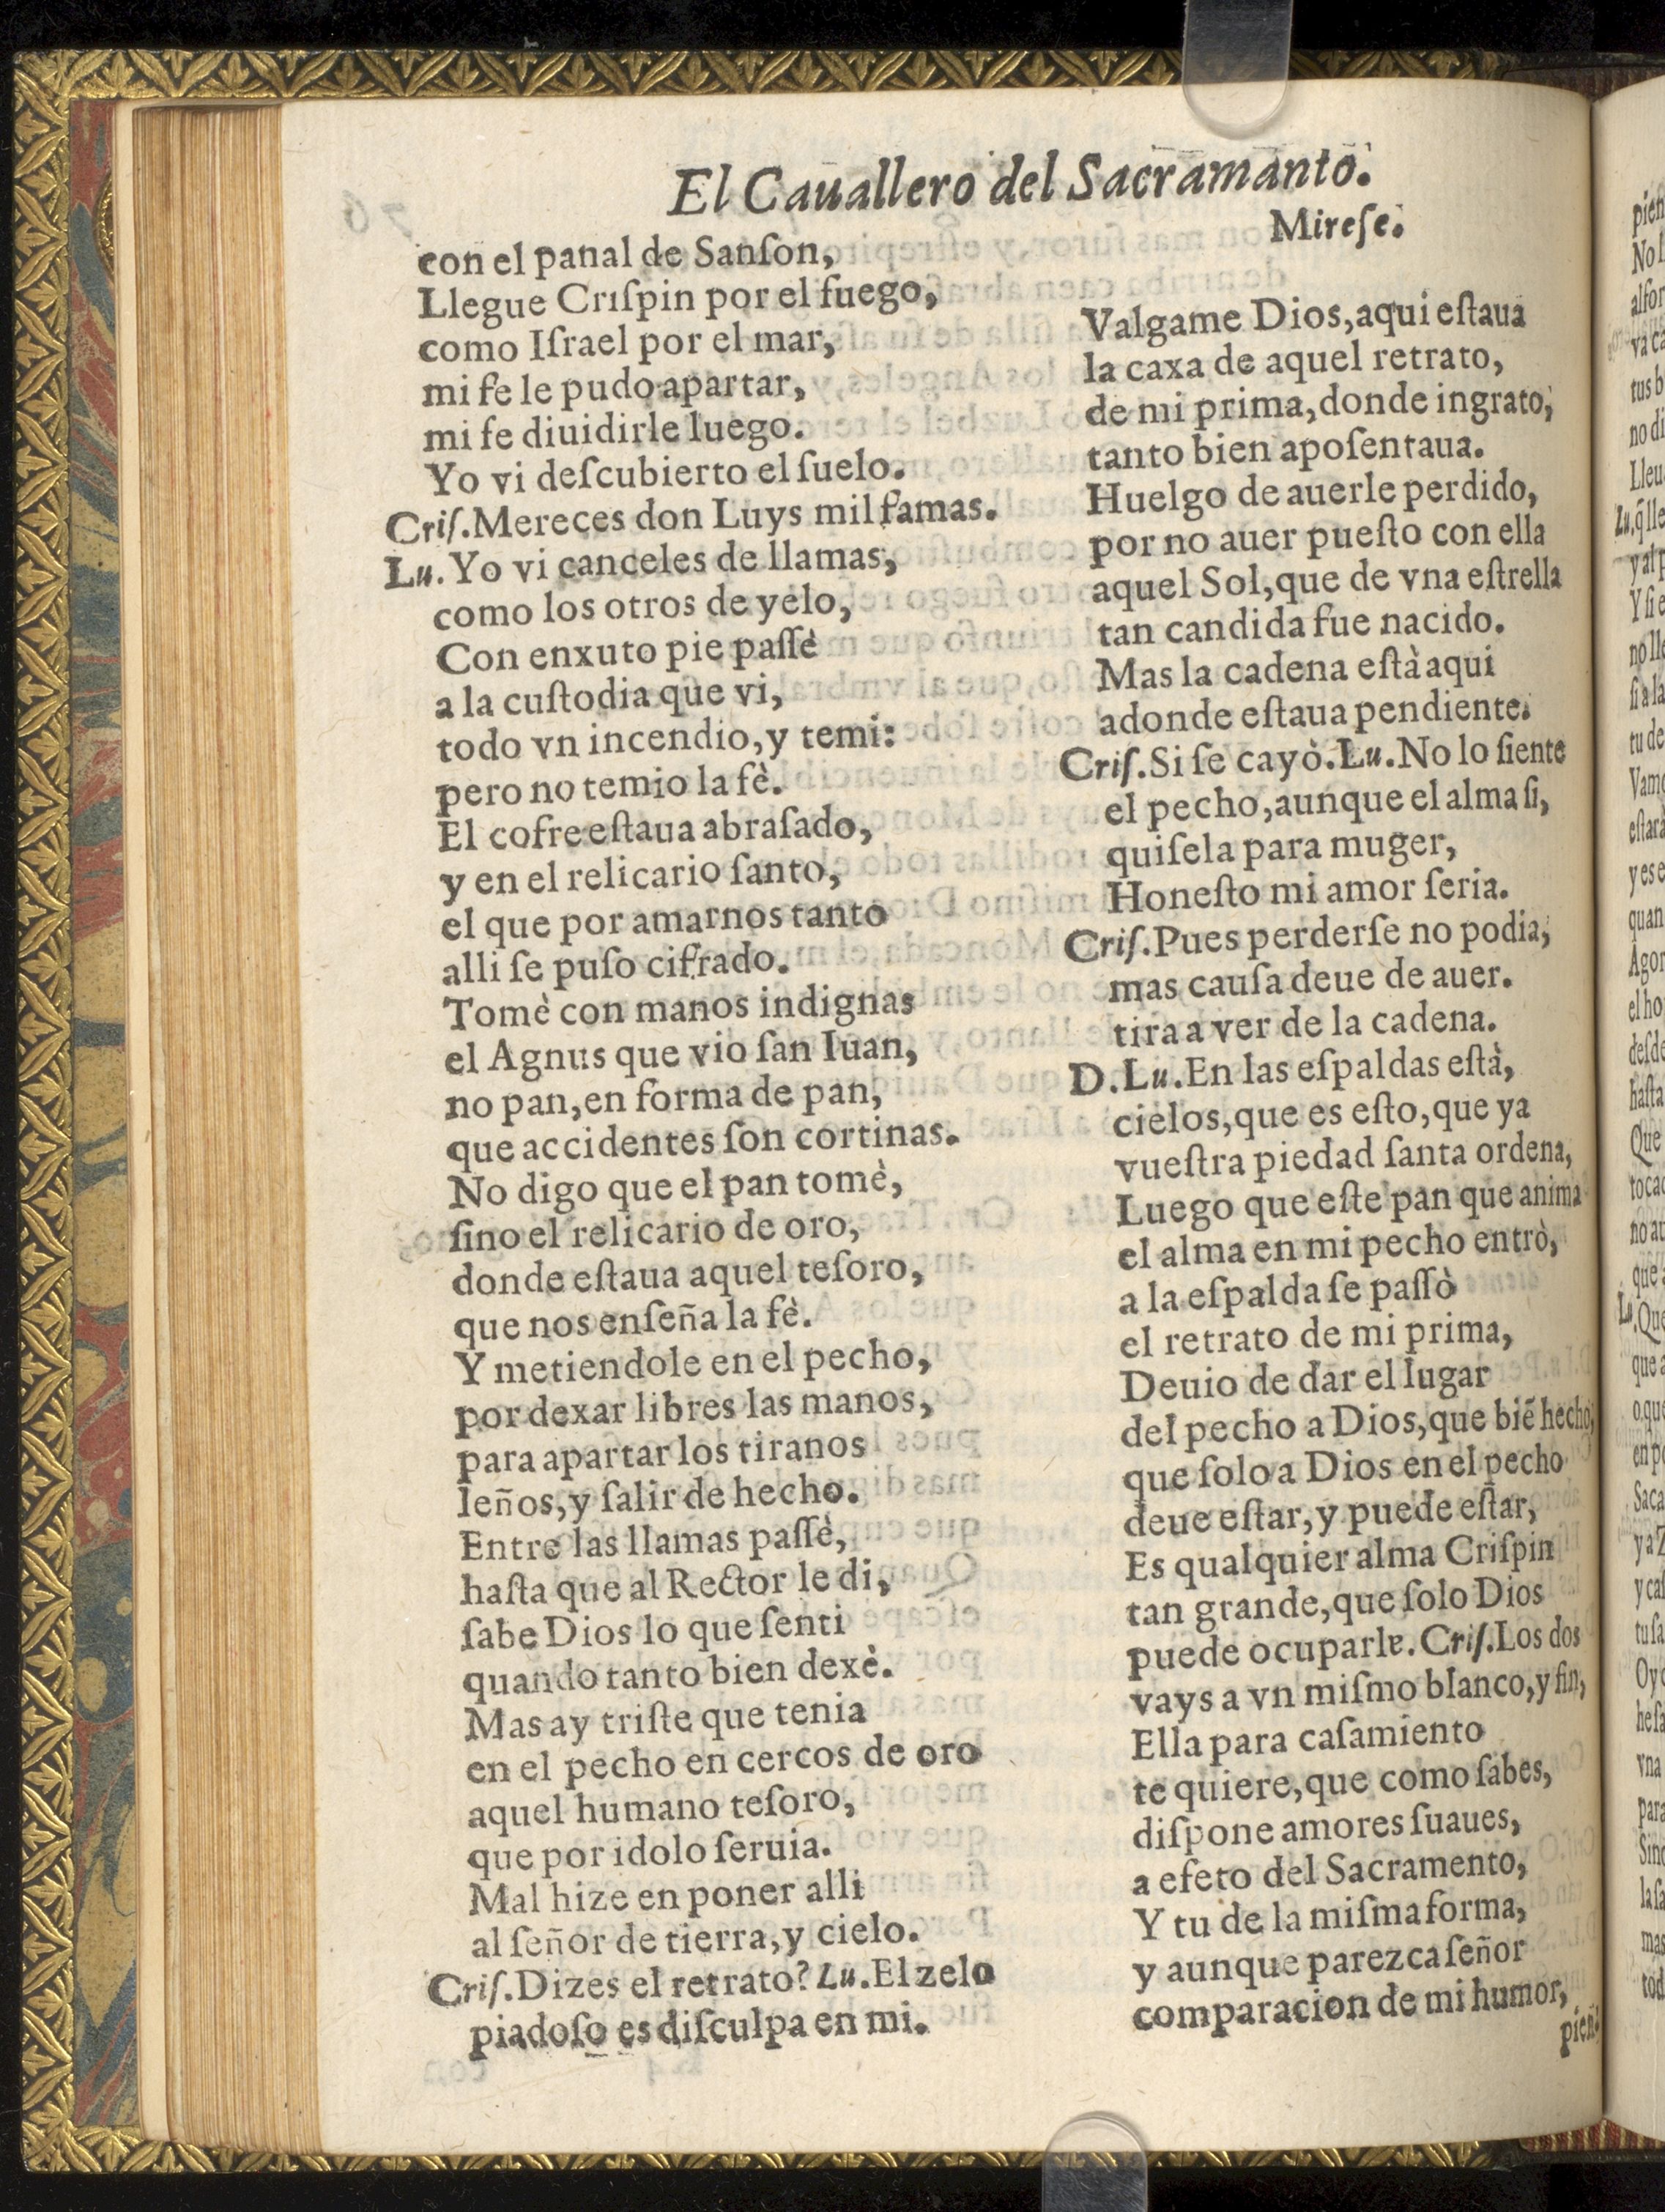 El Cauallero del Sacramanto.
con el panal de Sanſon,
Llegue Criſpin por el fuego,
como Iſrael por el mar,
mi fe le pudo apartar,
mi fe diuidirle luego.
Yo vi deſcubierto el ſuelo.
Criſ. Mereces don Luys mil famas.
Lu. Yo vi canceles de llamas,
como los otros de yelo,
Con enxuto pie paſſè
a la cuſtodia que vi,
todo vn incendio, y temi:
pero no temio la fè.
El cofre eſtaua abraſado,
y en el relicario ſanto,
el que por amarnos tanto
alli ſe puſo cifrado.
Tomè con manos indignas
el Agnus que vio ſan Iuan,
no pan, en forma de pan,
que accidentes ſon cortinas.
No digo que el pan tomè,
ſino el relicario de oro,
donde eſtaua aquel teſoro,
que nos enſeña la fè.
Y metiendole en el pecho,
por dexar libres las manos,
para apartar los tiranos
leños, y ſalir de hecho.
Entre las llamas paſſè,
haſta que al Rector le di,
ſabe Dios lo que ſenti
quando tanto bien dexè.
Mas ay triſte que tenia
en el pecho en cercos de oro
aquel humano teſoro,
que por idolo ſeruia.
Mal hize en poner alli
al ſeñor de tierra, y cielo.
Criſ. Dizes el retrato? Lu. El zelo
piadoſo es diſculpa en mi.
Mireſe.
Valgame Dios, aqui eſtaua
la caxa de aquel retrato,
de mi prima, donde ingrato,
tanto bien apoſentaua.
Huelgo de auerle perdido,
por no auer pueſto con ella
aquel Sol, que de vna eſtrella
tan candida fue nacido.
Mas la cadena eſtà aqui
adonde eſtaua pendiente.
Criſ. Si ſe cayò. Lu. No lo ſiente
el pecho, aunque el alma ſi,
quiſela para muger,
Honeſto mi amor ſeria.
Criſ. Pues perderſe no podia,
mas cauſa deue de auer.
tira a ver de la cadena.
D. Lu. En las eſpaldas eſtà,
cielos, que es eſto, que ya
vueſtra piedad ſanta ordena,
Luego que eſte pan que anima
el alma en mi pecho entrò,
a la eſpalda ſe paſſò
el retrato de mi prima,
Deuio de dar el lugar
del pecho a Dios, que biẽ hecho,
que ſolo a Dios en el pecho
deue eſtar, y puede eſtar,
Es qualquier alma Criſpin
tan grande, que ſolo Dios
puede ocuparle. Criſ. Los dos
vays a vn miſmo blanco, y fin,
Ella para caſamiento
te quiere, que como ſabes,
diſpone amores ſuaues,
a efeto del Sacramento,
Y tu de la miſma forma,
y aunque parezca ſeñor
comparacion de mi humor,
pien-